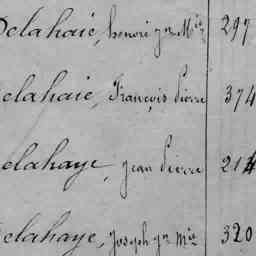 Delahaie, henri gn Mie 297
Delahaie, François Pierre 374
Delahaye, Jean Pierre 214
Delahaye, Joseph gn Mie 320